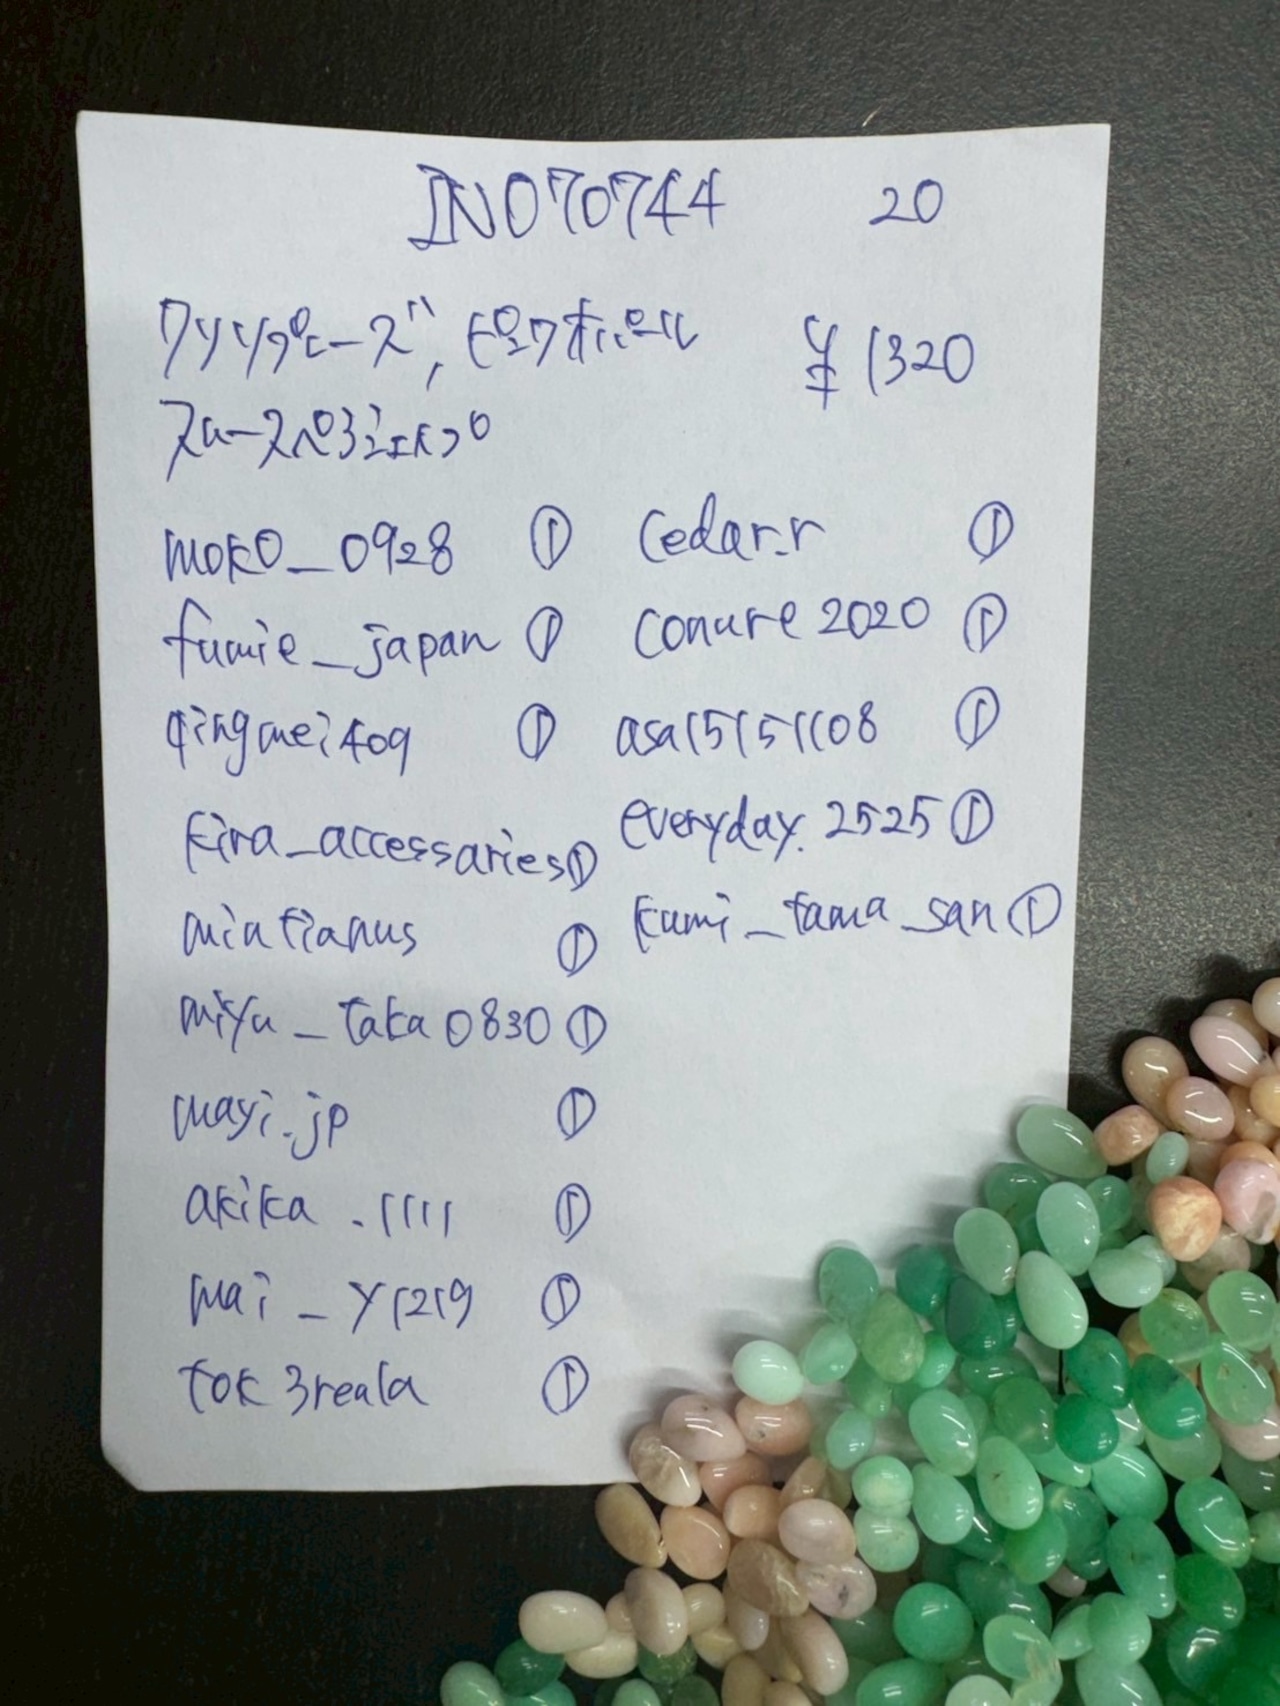 IN070744 20
クリソプレーズ, ピンクオパール ¥1320
スムースペアシェイプ
moko_0928 ①
fumie_japan ①
qingmei409 ①
kira_accessaries ①
miatianus ①
miyu_taka0830 ①
mayi.jp ①
akika.1111 ①
mai_y1219 ①
tok3reala ①
cedar.r ①
conure2020 ①
asa15151108 ①
everyday.2525 ①
kumi_tama_san ①